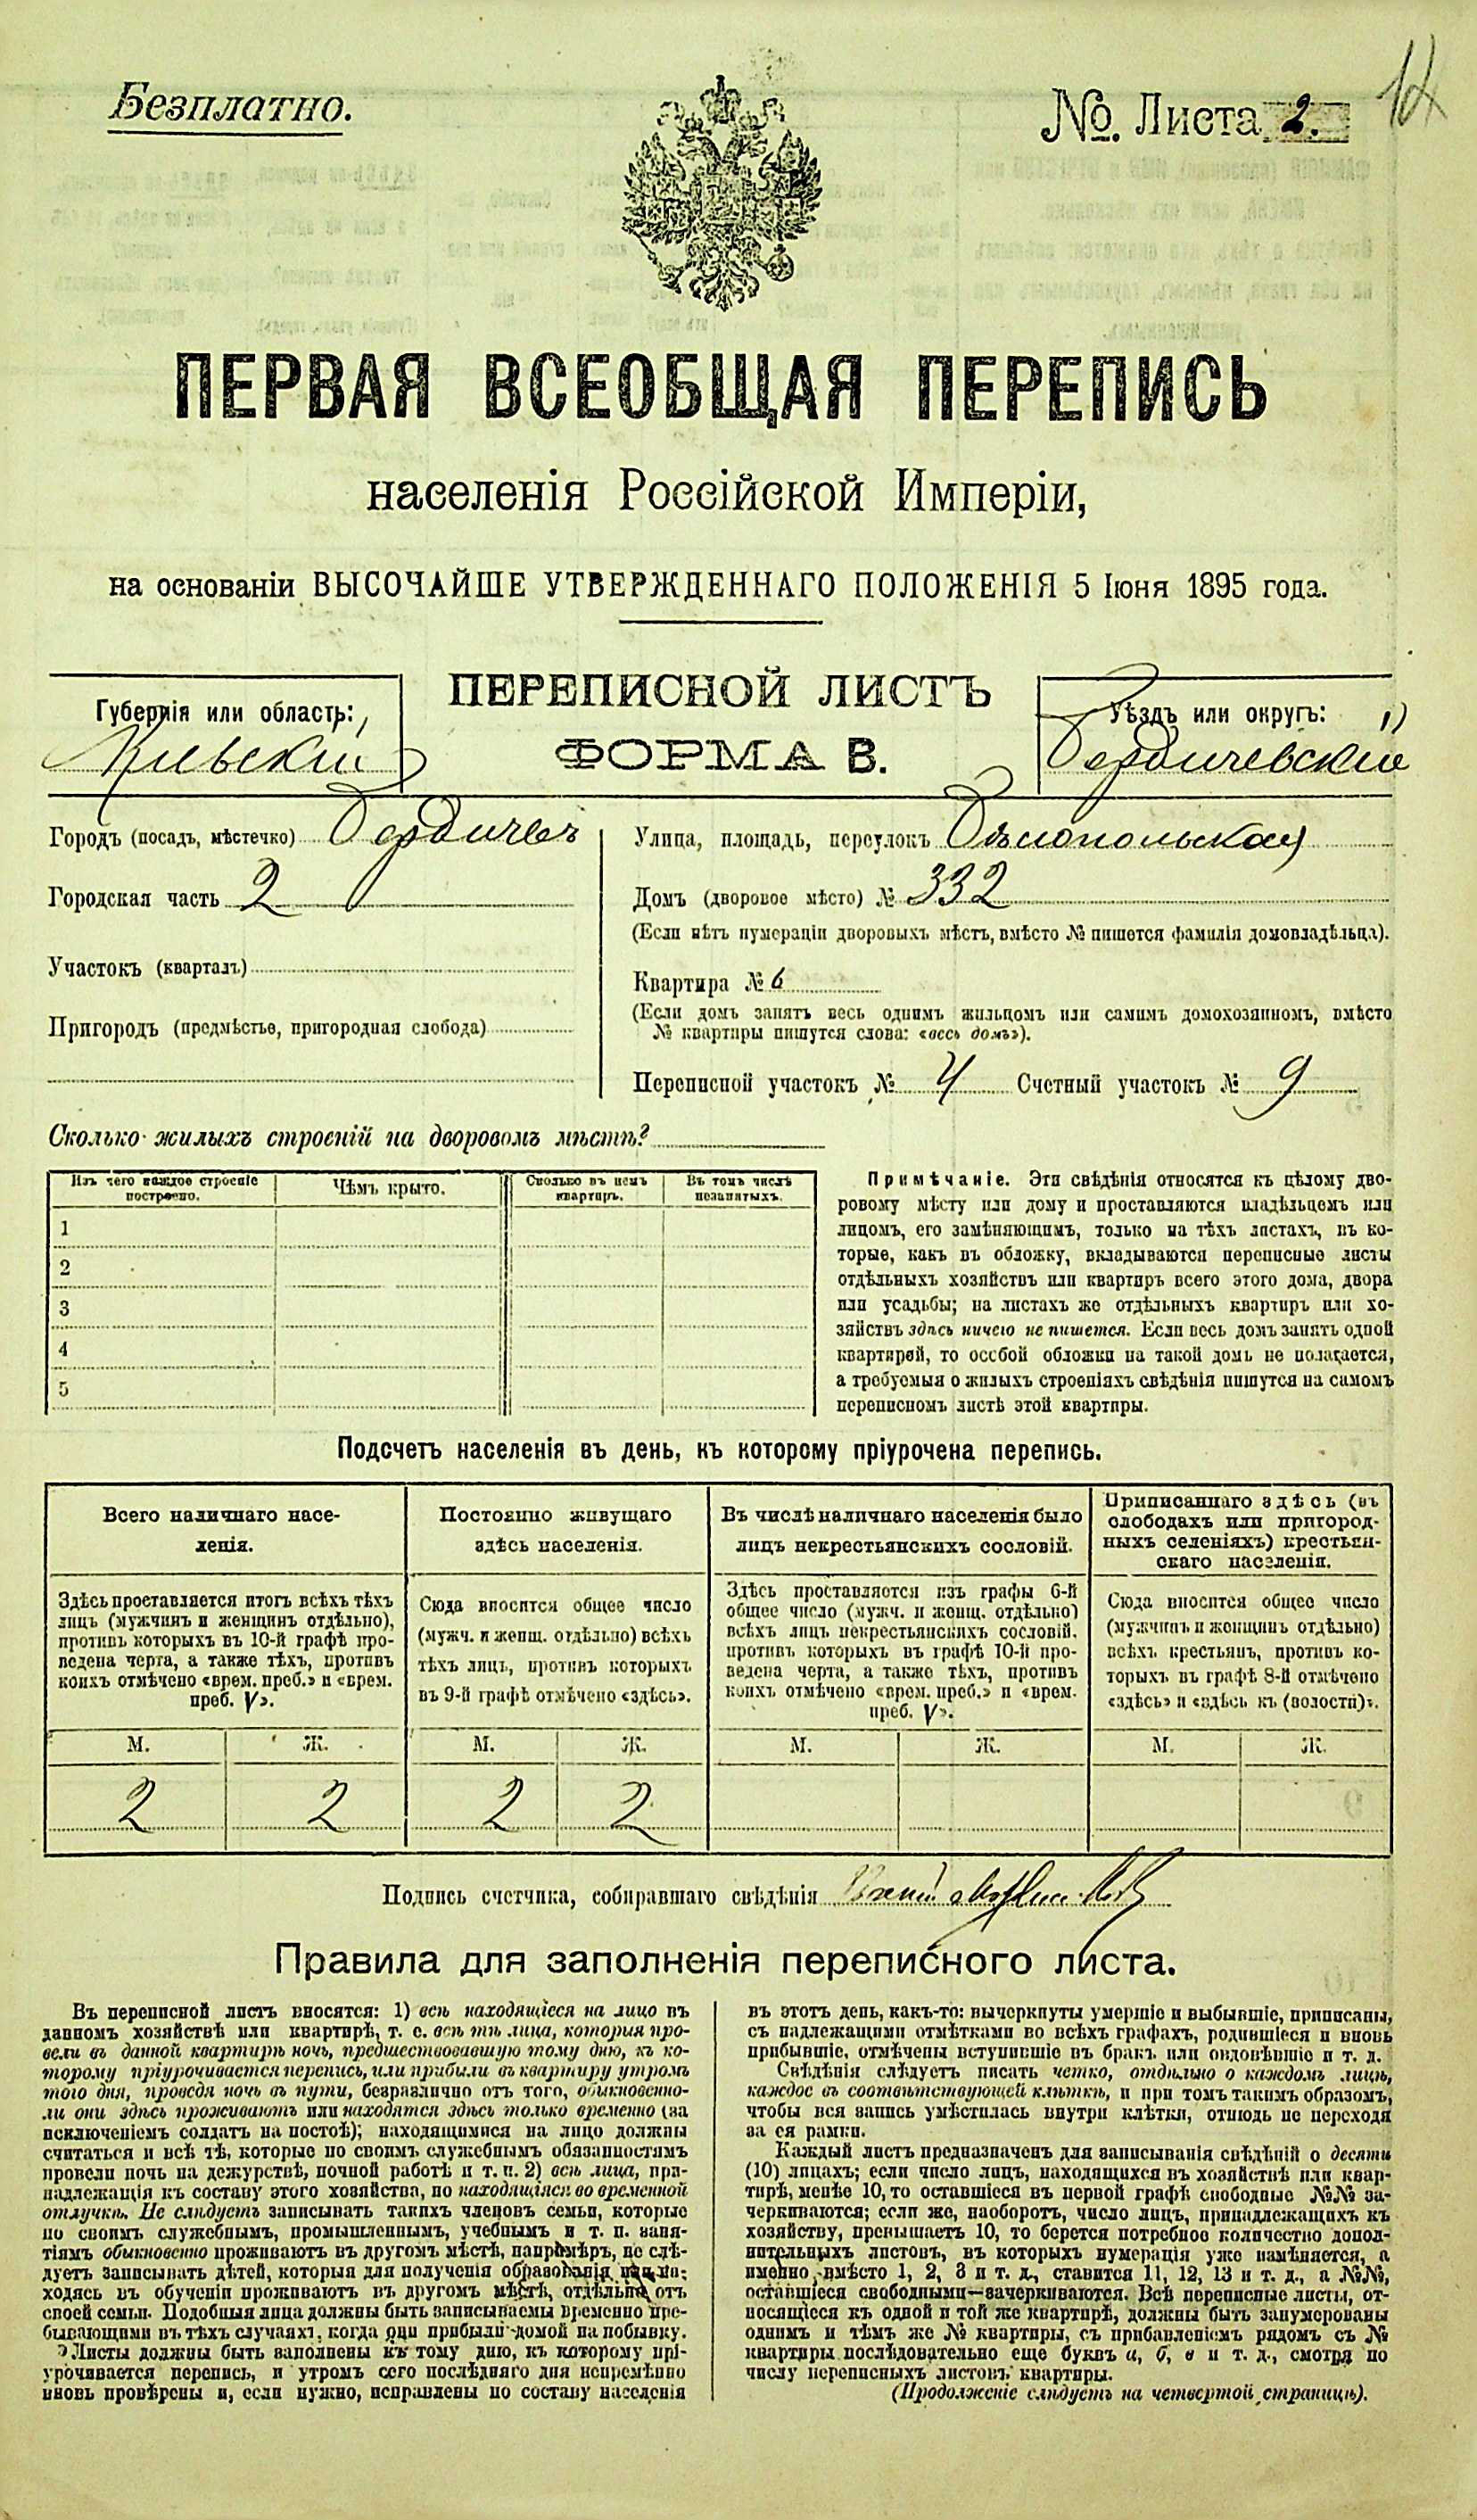 Безплатно.
№. Листа 2.
ПЕРВАЯ ВСЕОБЩАЯ ПЕРЕПИСЬ
населенія Россійской Имперіи,
на основаніи ВЫСОЧАЙШЕ УТВЕРЖДЕННАГО ПОЛОЖЕНІЯ 5 Іюня 1895 года.
ПЕРЕПИСНОЙ ЛИСТЪ
ФОРМА В.
Губернія или область:
Кіевскій
Уѣздъ или округъ:
Бердичевскій
Городъ (посадъ, мѣстечко) Бердичевъ
Городская часть 2
Участокъ (кварталъ)
Пригородъ (предмѣстье, пригородная слобода)
Улица, площадь, переулокъ Бѣлопольская
Домъ (дворовое мѣсто) № 332
(Если нѣтъ нумераціи дворовыхъ мѣстъ, вмѣсто № пишется фамилія домовладѣльца).
Квартира № 6
(Если домъ занятъ весь однимъ жильцомъ или самимъ домохозяиномъ, вмѣсто
№ квартиры пишутся слова: «весь домъ»).
Переписной участокъ № 4 Счетный участокъ № 9
Сколько жилыхъ строеній на дворовомъ мѣстѣ?
Изъ чего каждое строеніе построено.
Чѣмъ крыто.
Сколько въ немъ квартиръ.
Въ томъ числѣ незанятыхъ.
1
2
3
4
5
Примѣчаніе. Эти свѣдѣнія относятся къ цѣлому дво-
ровому мѣсту или дому и проставляются владѣльцемъ или
лицомъ, его замѣняющимъ, только на тѣхъ листахъ, въ ко-
торые, какъ въ обложку, вкладываются переписные листы
отдѣльныхъ хозяйствъ или квартиръ всего этого дома, двора
или усадьбы; на листахъ же отдѣльныхъ квартиръ или хо-
зяйствъ здѣсь ничего не пишется. Если весь домъ занятъ одной
квартирой, то особой обложки на такой домъ не полагается,
а требуемыя о жилыхъ строеніяхъ свѣдѣнія пишутся на самомъ
переписномъ листѣ этой квартиры.
Подсчетъ населенія въ день, къ которому пріурочена перепись.
Всего наличнаго насе-
ленія.
Здѣсь проставляется итогъ всѣхъ тѣхъ
лицъ (мужчинъ и женщинъ отдѣльно),
противъ которыхъ въ 10-й графѣ про-
ведена черта, а также тѣхъ, противъ
коихъ отмѣчено «врем. преб.» и «врем.
преб. V».
Постоянно живущаго
здѣсь населенія.
Сюда вносится общее число
(мужч. и женщ. отдѣльно) всѣхъ
тѣхъ лицъ, противъ которыхъ
въ 9-й графѣ отмѣчено «здѣсь».
Въ числѣ наличнаго населенія было
лицъ некрестьянскихъ сословій.
Здѣсь проставляются изъ графы 6-й
общее число (мужч. и женщ. отдѣльно)
всѣхъ лицъ некрестьянскихъ сословій,
противъ которыхъ въ графѣ 10-й про-
ведена черта, а также тѣхъ, противъ
коихъ отмѣчено «врем. преб.» и «врем.
преб. V».
Приписаннаго здѣсь (въ
слободахъ или пригород-
ныхъ селеніяхъ) крестьян-
скаго населенія.
Сюда вносится общее число
(мужчинъ и женщинъ отдѣльно)
всѣхъ крестьянъ, противъ ко-
торыхъ въ графѣ 8-й отмѣчено
«здѣсь» и «здѣсь къ (волости)».
М. Ж. М. Ж. М. Ж. М. Ж.
2 2 2 2
Подпись счетчика, собиравшаго свѣдѣнія
Правила для заполненія переписного листа.
Въ переписной листъ вносятся: 1) всѣ находящіеся на лицо въ
данномъ хозяйствѣ или квартирѣ, т. е. всѣ тѣ лица, которыя про-
вели въ данной квартирѣ ночь, предшествовавшую тому дню, къ ко-
торому пріурочивается перепись, или прибыли въ квартиру утромъ
того дня, проведя ночь въ пути, безразлично отъ того, обыкновенно-
ли они здѣсь проживаютъ или находятся здѣсь только временно (за
исключеніемъ солдатъ на постоѣ); находящимися на лицо должны
считаться и всѣ тѣ, которые по своимъ служебнымъ обязанностямъ
провели ночь на дежурствѣ, ночной работѣ и т. п. 2) всѣ лица, при-
надлежащія къ составу этого хозяйства, но находящіяся во временной
отлучкѣ. Не слѣдуетъ записывать такихъ членовъ семьи, которые
по своимъ служебнымъ, промышленнымъ, учебнымъ и т. п. заня-
тіямъ обыкновенно проживаютъ въ другомъ мѣстѣ, напримѣръ, не слѣ-
дуетъ записывать дѣтей, которыя для полученія образованія
ходясь въ обученіи проживаютъ въ другомъ мѣстѣ, отдѣльно отъ
своей семьи. Подобныя лица должны быть записываемы временно пре-
бывающими въ тѣхъ случаяхъ, когда они прибыли домой на побывку.
Листы должны быть заполнены къ тому дню, къ которому прі-
урочивается перепись, и утромъ сего послѣдняго дня непремѣнно
вновь провѣрены и, если нужно, исправлены по составу населенія
въ этотъ день, какъ-то: вычеркнуты умершіе и выбывшіе, приписаны,
съ надлежащими отмѣтками во всѣхъ графахъ, родившіеся и вновь
прибывшіе, отмѣчены вступившіе въ бракъ или овдовѣвшіе и т. д.
Свѣдѣнія слѣдуетъ писать четко, отдѣльно о каждомъ лицѣ,
каждое въ соотвѣтствующей клѣткѣ, и при томъ такимъ образомъ,
чтобы вся запись умѣстилась внутри клѣтки, отнюдь не переходя
за ея рамки.
Каждый листъ предназначенъ для записыванія свѣдѣній о десяти
(10) лицахъ; если число лицъ, находящихся въ хозяйствѣ или квар-
тирѣ, менѣе 10, то оставшіеся въ первой графѣ свободные №№ за-
черкиваются; если же, наоборотъ, число лицъ, принадлежащихъ къ
хозяйству, превышаетъ 10, то берется потребное количество допол-
нительныхъ листовъ, въ которыхъ нумерація уже измѣняется, а
именно, вмѣсто 1, 2, 3 и т. д., ставится 11, 12, 13 и т. д., а №№,
оставшіеся свободными—зачеркиваются. Всѣ переписные листы, от-
носящіеся къ одной и той же квартирѣ, должны быть занумерованы
однимъ и тѣмъ же № квартиры, съ прибавленіемъ рядомъ съ №
квартиры последовательно еще буквъ а, б, в и т. д., смотря по
числу переписныхъ листовъ квартиры.
(Продолженіе слѣдуетъ на четвертой страницѣ).